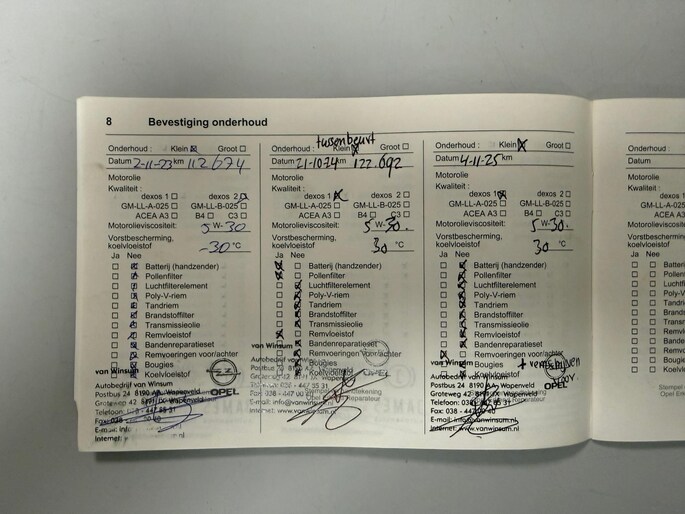 8 Bevestiging onderhoud
Onderhoud : Klein ☒ Groot ☐
Datum 2-11-23 km 112674
Motorolie
Kwaliteit :
dexos 1 ☐ dexos 2 ☒
GM-LL-A-025 ☐ GM-LL-B-025 ☐
ACEA A3 ☐ B4 ☐ C3 ☐
Motorolieviscositeit: 5 W-30
Vorstbescherming,
koelvloeistof -30 °C
Ja Nee
Batterij (handzender)
Pollenfilter
Luchtfilterelement
Poly-V-riem
Tandriem
Brandstoffilter
Transmissieolie
Remvloeistof
Bandenreparatieset
Remvoeringen voor/achter
Bougies
Koelvloeistof
van Winsum
Autobedrijf van Winsum
Postbus 24 8190 AA Wapenveld
Groteweg 42 Wapenveld
Telefoon: 038 - 447 85 31
Fax: 038
E-mail:
Internet:
OPEL
tussenbeurt
Onderhoud : Klein ☒ Groot ☐
Datum km 122.092
Motorolie
Kwaliteit :
dexos 1 ☒ dexos 2 ☐
GM-LL-A-025 ☐ GM-LL-B-025 ☐
ACEA A3 ☐ B4 ☐ C3 ☐
Motorolieviscositeit: 5 W-30.
Vorstbescherming,
koelvloeistof 30 °C
Ja Nee
Batterij (handzender)
Pollenfilter
Luchtfilterelement
Poly-V-riem
Tandriem
Brandstoffilter
Transmissieolie
Remvloeistof
Bandenreparatieset
Remvoeringen voor/achter
Bougies
Koelvloeistof
van Winsum
Autobedrijf
Postbus
OPEL
Internet: www.vanwinsum.nl
Onderhoud : Klein ☒ Groot ☐
Datum 4-11-25 km
Motorolie
Kwaliteit :
dexos 1 ☒ dexos 2 ☐
GM-LL-A-025 ☐ GM-LL-B-025 ☐
ACEA A3 ☐ B4 ☐ C3 ☐
Motorolieviscositeit: 5 W-30.
Vorstbescherming,
koelvloeistof 30 °C
Ja Nee
Batterij (handzender)
Pollenfilter
Luchtfilterelement
Poly-V-riem
Tandriem
Brandstoffilter
Transmissieolie
Remvloeistof
Bandenreparatieset
Remvoeringen voor/achter
Bougies
Koelvloeistof
van Winsum
Autobedrijf van Winsum
Postbus 24 8190 AA Wapenveld
Groteweg 42 Wapenveld
Telefoon: 038
Fax: 038 - 447
E-mail: info@vanwinsum.nl
Internet: www.vanwinsum.nl
OPEL
Onderhoud
Datum
Motorolie
Kwaliteit :
Motorolie
Vorstbesch
koelvloeist
Ja Nee
Stempel
Opel Er